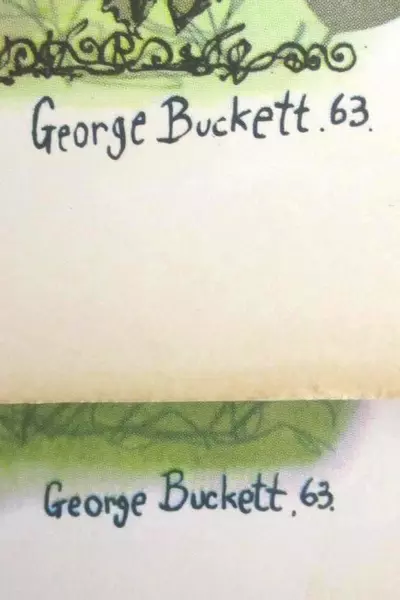 George Buckett. 63.
George Buckett. 63.